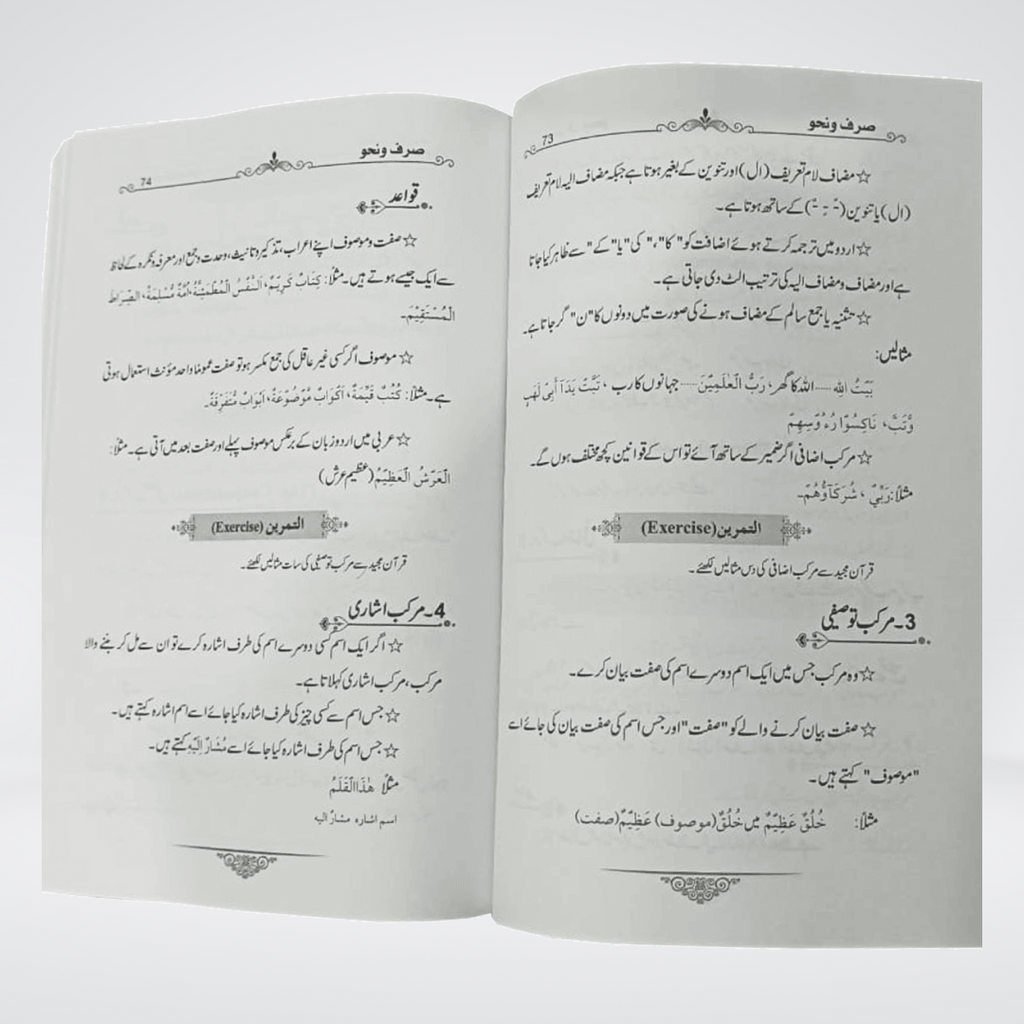 صرف ونحو
73
☆ مضاف لام تعریف (ال) اور تنوین کے بغیر ہوتا ہے جبکہ مضاف الیہ لام تعریف
(ال) یا تنوین (ـًـ ـٍـ ـٌـ) کے ساتھ ہوتا ہے۔
☆ اردو میں ترجمہ کرتے ہوئے اضافت کو "کا"، "کی" یا "کے" سے ظاہر کیا جاتا
ہے اور مضاف و مضاف الیہ کی ترتیب الٹ دی جاتی ہے۔
☆ تثنیہ یا جمع سالم کے مضاف ہونے کی صورت میں دونوں کا "ن" گر جاتا ہے۔
مثالیں:
بَیْتُ اللہ ..... اللہ کا گھر، رَبُّ الْعٰلَمِیْنَ ..... جہانوں کا رب، تَبَّتْ یَدَآ أَبِیْ لَهَبٍ
وَّتَبَّ، نَاكِسُوْا رُءُوْسِهِمْ
☆ مرکب اضافی اگر ضمیر کے ساتھ آئے تو اس کے قوانین کچھ مختلف ہوں گے۔
مثلاً: رَبِّيْ ، شُرَكَآؤُهُمْ۔
التمرین (Exercise)
قرآن مجید سے مرکب اضافی کی دس مثالیں لکھئے۔
3۔ مرکب توصیفی
☆ وہ مرکب جس میں ایک اسم دوسرے اسم کی صفت بیان کرے۔
☆ صفت بیان کرنے والے کو "صفت" اور جس اسم کی صفت بیان کی جائے اسے
"موصوف" کہتے ہیں۔
مثلاً: خُلُقٌ عَظِیْمٌ میں خُلُقٌ (موصوف) عَظِیْمٌ (صفت)
صرف ونحو
74
قواعد
☆ صفت و موصوف اپنے اعراب، تذکیر و تانیث، وحدت و جمع اور معرفہ و نکرہ کے لحاظ
سے ایک جیسے ہوتے ہیں۔ مثلاً: كِتَابٌ كَرِيْمٌ، اَلنَّفْسُ الْمُطْمَئِنَّةُ، اُمَّةٌ مُّسْلِمَةٌ، الصِّرَاطَ
الْمُسْتَقِيْمَ۔
☆ موصوف اگر کسی غیر عاقل کی جمع مکسر ہو تو صفت عموماً واحد مؤنث استعمال ہوتی
ہے۔ مثلاً: كُتُبٌ قَيِّمَةٌ، اَكْوَابٌ مَّوْضُوْعَةٌ، اَبْوَابٌ مُّتَفَرِّقَةٌ۔
☆ عربی میں اردو زبان کے برعکس موصوف پہلے اور صفت بعد میں آتی ہے۔ مثلاً:
الْعَرْشُ الْعَظِيْمُ (عظیم عرش)
التمرین (Exercise)
قرآن مجید سے مرکب توصیفی کی سات مثالیں لکھئے۔
4۔ مرکب اشاری
☆ اگر ایک اسم کسی دوسرے اسم کی طرف اشارہ کرے تو ان سے مل کر بننے والا
مرکب، مرکب اشاری کہلاتا ہے۔
☆ جس اسم سے کسی چیز کی طرف اشارہ کیا جائے اسے اسم اشارہ کہتے ہیں۔
☆ جس اسم کی طرف اشارہ کیا جائے اسے مُشَارٌ اِلَيْهِ کہتے ہیں۔
مثلاً هٰذَا الْقَلَمُ
اسم اشارہ مشارٌ الیه